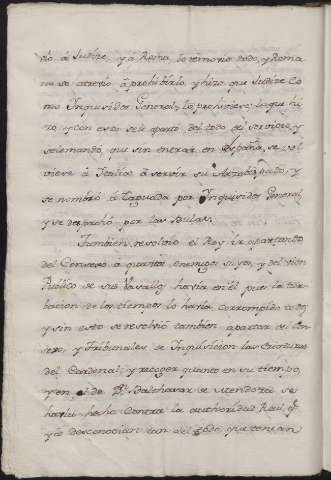 rio á Judice, y á Roma, lo temorio todo, y Roma
no se atrevio á prohibirlo, y hizo que Judice co
mo Inquisidor General, lo prohiviese, lo que hi
zo, y con esto se le apartó del todo del servicio, y
se le mandó, que sin entrar en España, se vol
viese á Italia á servir su Arzobispado, y
se nombró á Taguada por Inquisidor General
y se despachó por las Bulas.
Tambien resolvió el Rey ir apartando
del Consexo á quantos enemigos suyos, y del vien
Publico de sus Vasallos havia en él, que la tur
bacion de los tiempos lo havia corrompido todo,
y sin esto se resolvió tambien apartar del Con
sexo, y Tribunales de Inquisicion las Criaturas
del Cardenal, y recoger quanto en su tiempo,
y en el de Dn. Balthasar de Mendoza se
havia hecho contra la authoridad Real, qe.
ya desconocian tan del todo, que tenian